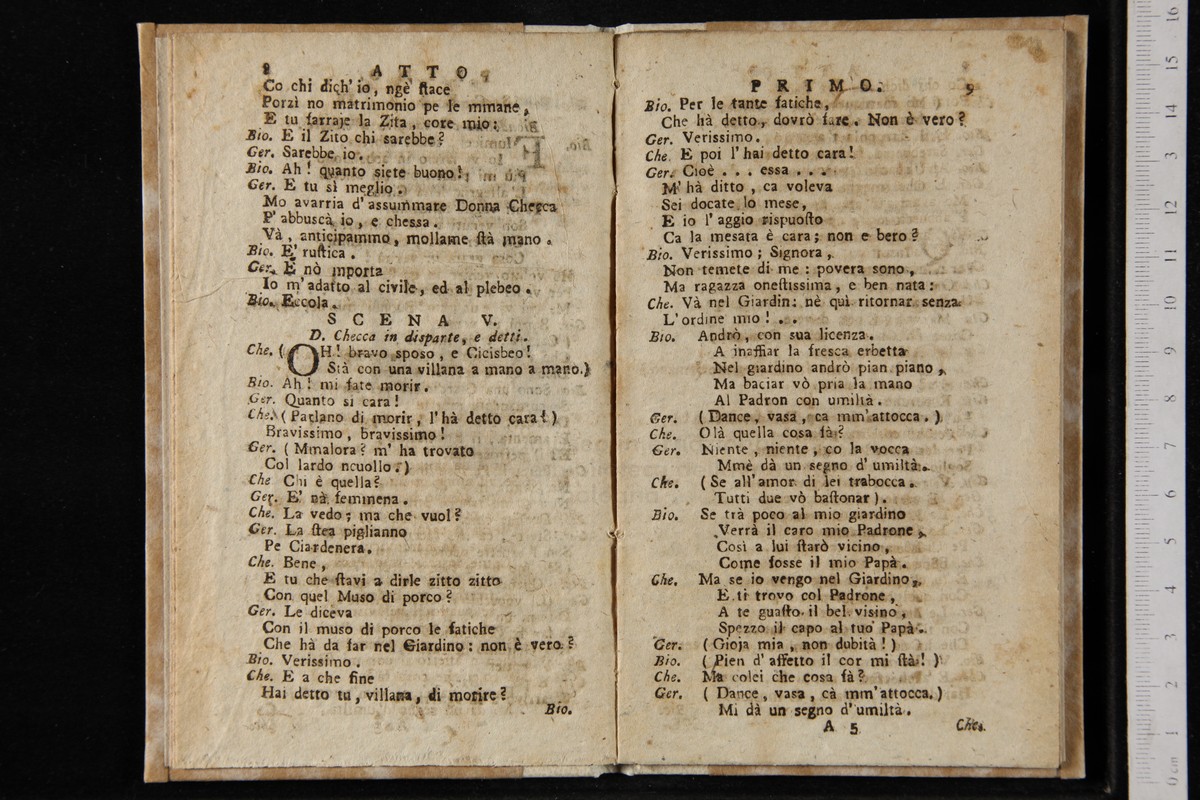 8 ATTO
Co chi dich' io, ngè ſtace
Porzì no matrimonio pe le mmane,
E tu farraje la Zita, core mio:
Bio. E il Zito chi sarebbe?
Ger. Sarebbe io.
Bio. Ah! quanto siete buono!
Ger. E tu sì meglio.
Mo avarria d' assummare Donna Checca
P' abbuscà io, e chessa.
Và, anticipammo, mollame ſtà mano.
Bio. E' ruſtica.
Ger. E nò mporta
Io m' adatto al civile, ed al plebeo.
Bio. Eccola.
SCENA V.
D. Checca in disparte, e detti.
Che. (OH! bravo sposo, e Cicisbeo!
Stà con una villana a mano a mano.)
Bio. Ah! mi fate morir.
Ger. Quanto si cara!
Che. (Parlano di morir, l' hà detto cara!)
Bravissimo, bravissimo!
Ger. (Mmalora? m' ha trovato
Col lardo ncuollo.)
Che Chi è quella?
Ger. E' nà femmena.
Che. La vedo; ma che vuol?
Ger. La ſtea piglianno
Pe Ciardenera.
Che. Bene,
E tu che ſtavi a dirle zitto zitto
Con quel Muso di porco?
Ger. Le diceva
Con il muso di porco le fatiche
Che hà da far nel Giardino: non è vero?
Bio. Verissimo.
Che. E a che fine
Hai detto tu, villana, di morire?
Bio.
PRIMO. 9
Bio. Per le tante fatiche,
Che hà detto, dovrò fare. Non è vero?
Ger. Verissimo.
Che. E poi l' hai detto cara!
Ger. Cioè . . . essa . . .
M' hà ditto, ca voleva
Sei docate lo mese,
E io l' aggio rispuoſto
Ca la mesata è cara; non e bero?
Bio. Verissimo; Signora,
Non temete di me: povera sono,
Ma ragazza oneſtissima, e ben nata:
Che. Và nel Giardin: nè quì ritornar senza
L' ordine mio! . .
Bio. Andrò, con sua licenza.
A inaffiar la fresca erbetta
Nel giardino andrò pian piano,
Ma baciar vò pria la mano
Al Padron con umiltà.
Ger. (Dance, vasa, ca mm' attocca.)
Che. Olà quella cosa fà?
Ger. Niente, niente, co la vocca
Mmè dà un segno d' umiltà.
Che. (Se all' amor di lei trabocca.
Tutti due vò baſtonar).
Bio. Se trà poco al mio giardino
Verrà il caro mio Padrone,
Così a lui ſtarò vicino,
Come fosse il mio Papà.
Che. Ma se io vengo nel Giardino,
E ti trovo col Padrone,
A te guaſto il bel visino,
Spezzo il capo al tuo Papà.
Ger. (Gioja mia, non dubità!)
Bio. (Pien d' affetto il cor mi ſtà!)
Che. Ma colei che cosa fà?
Ger. (Dance, vasa, cà mm' attocca.)
Mi dà un segno d' umiltà.
A 5 Che.
0 cm 1 2 3 4 5 6 7 8 9 10 11 12 13 14 15 16